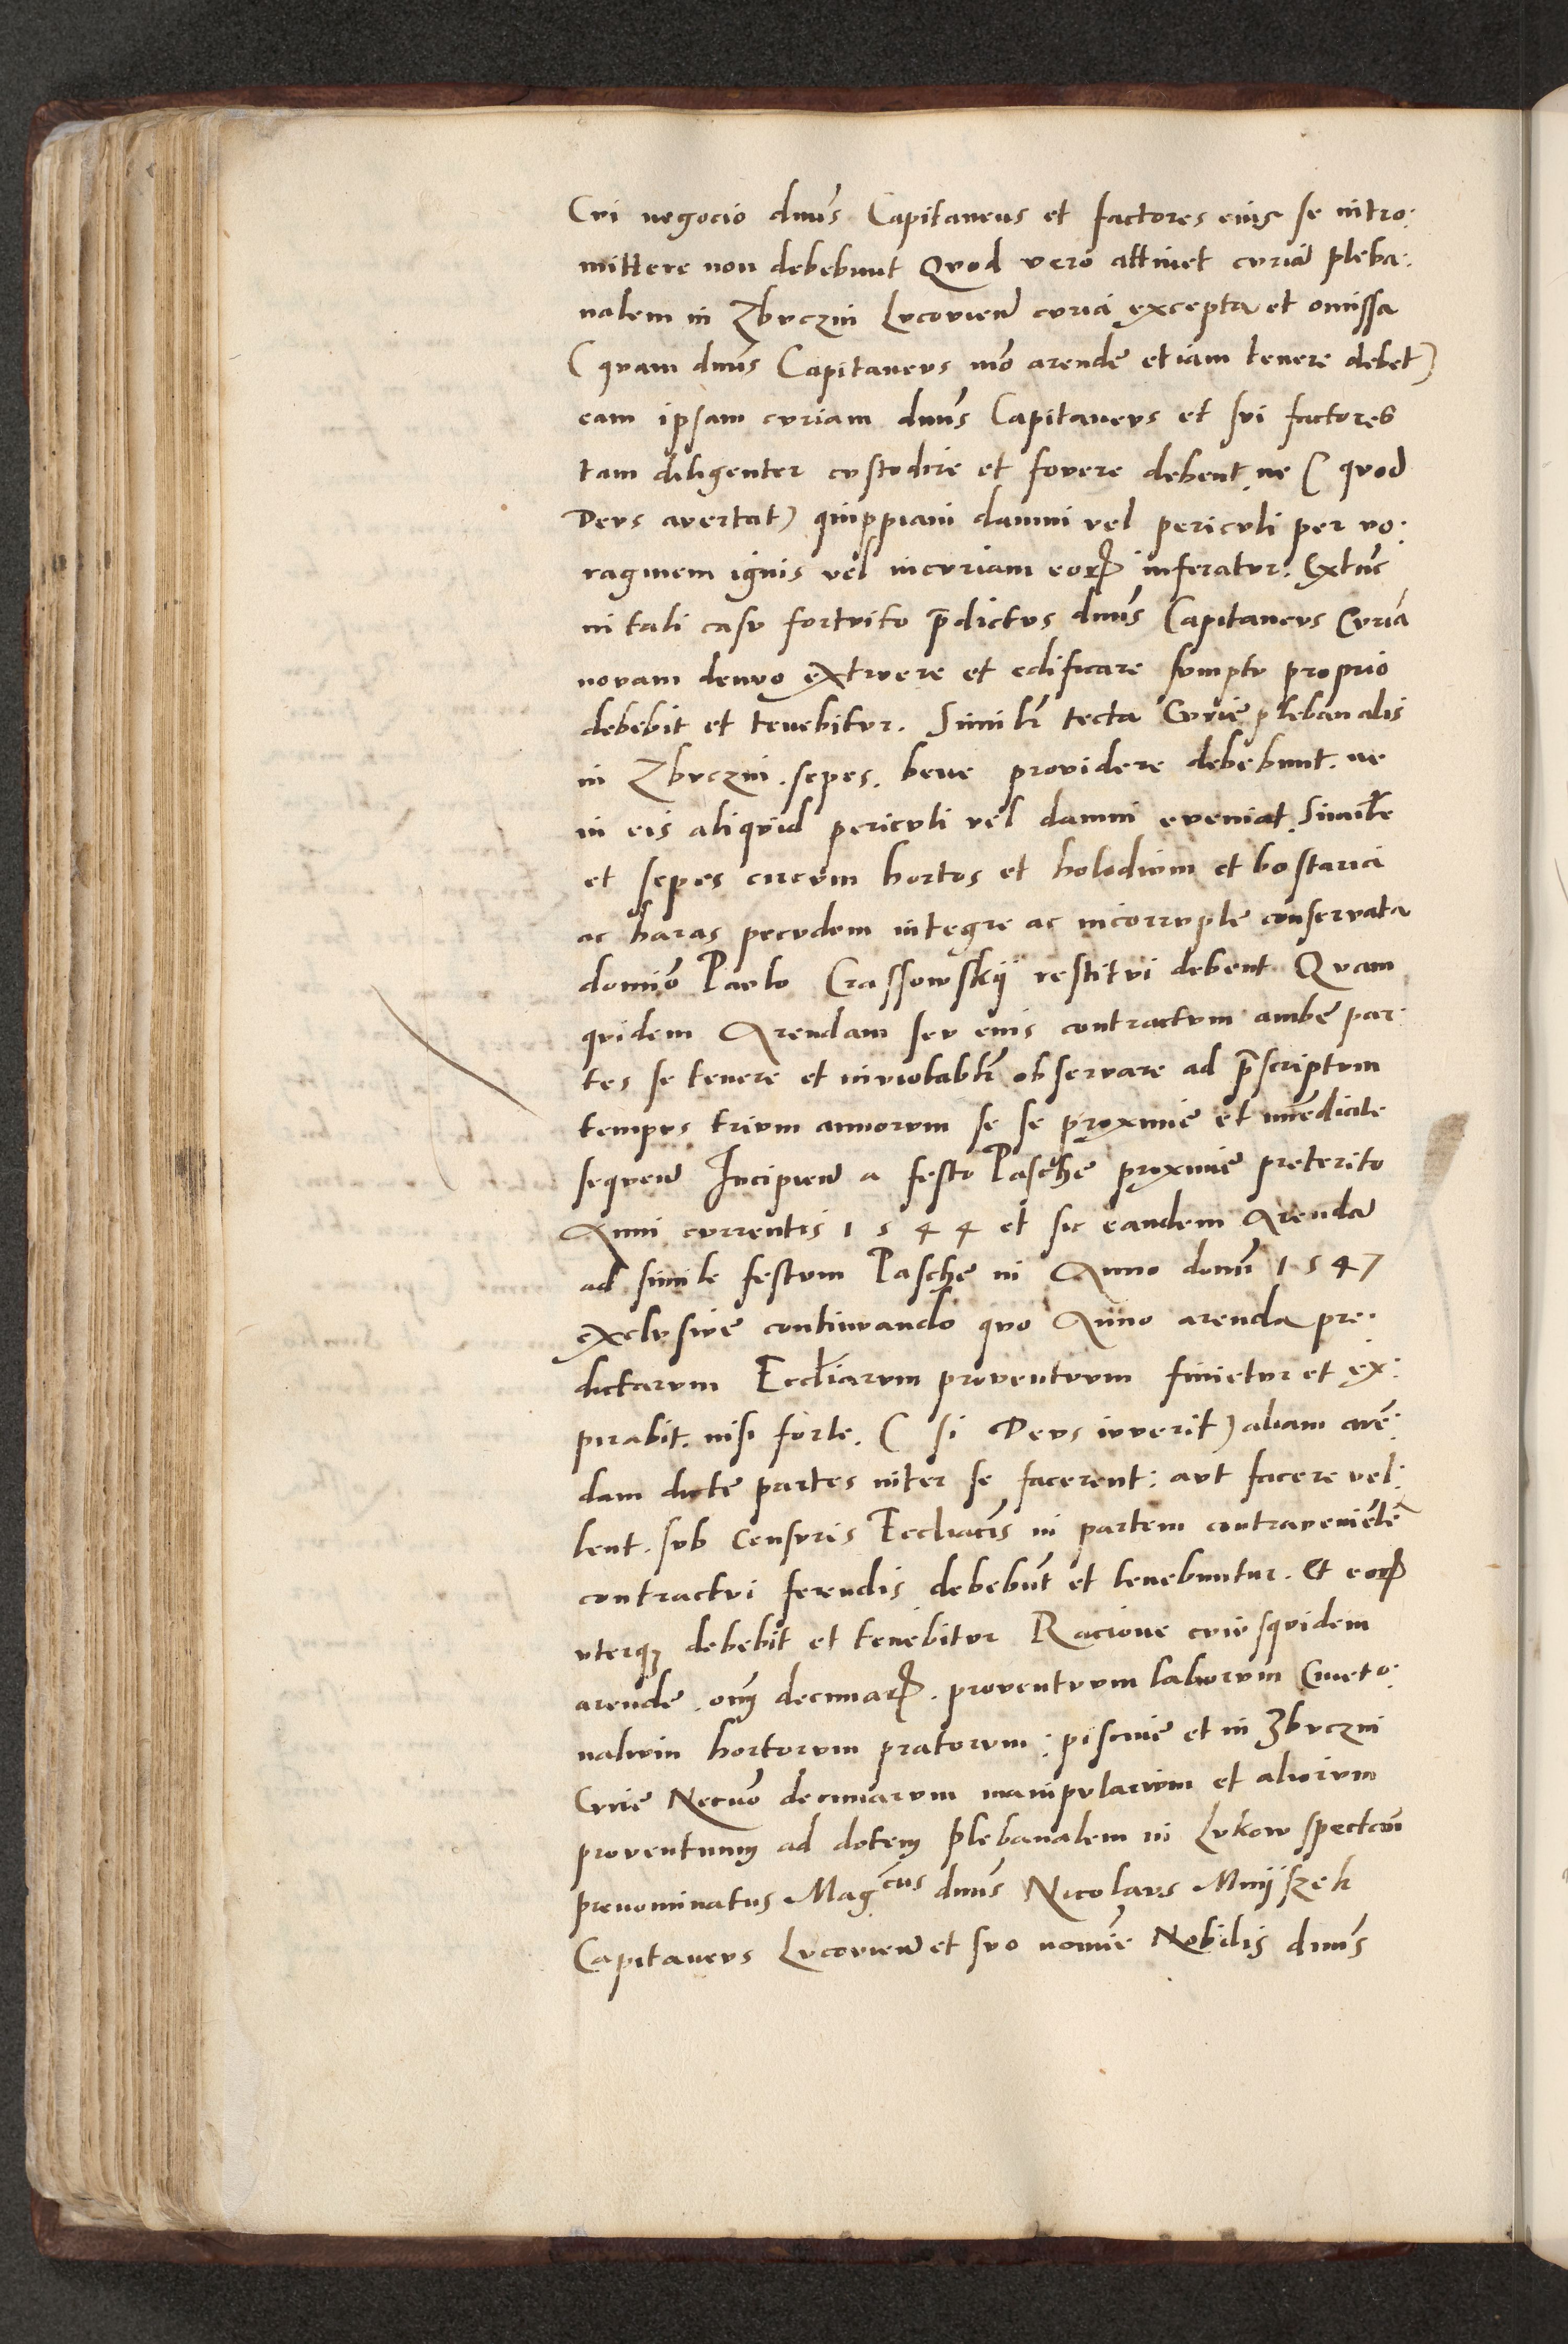 Cui negocio dnūs Capitaneus et factores eius se intro:
mittere non debebunt Quod vero attinet curiā pleba:
nalem in Zbuczin Lucovien̄ curia excepta et omissa
(quam dnūs Capitaneus mō arende etiam tenere debet)
eam ipsam curiam dnūs Capitaneus et sui factores
tam diligenter custodire et fovere debent, ne (quod
Deus avertat) quippiam damni vel periculi per vo:
raginem ignis vel incuriam eoꝝ inferatur: Extūc
in tali casu fortuito p̄dictus dnūs Capitaneus Curiā
novam denuo extruere et edificare sumptu proprio
debebit et tenebitur. Similr̄ tecta Curie plebanalis
in Zbuczin. sepes. bene providere debebunt. ne
in eis aliquid periculi vel damni eveniat. Simile
et sepes circum hortos et holodium et bostaria
ac haras pecudem integre ac incorrupte conservata
domiō Paulo Crassowskij restitui debent Quam
quidem Arendam seu eius contractum ambe par:
tes se tenere et inviolablr̄ observare ad p̄scriptum
tempus trium annorum se se proxime et im̄ediate
sequen̄ Incipien̄ a festo Pasche proxime preterito
Anni currentis 1544 et sic eandem Arendā
ad simile festum Pasche in Anno domī 1547
exclusive continuando quo Anno arenda pre:
dictarum Eccl̄iarum proventuum finietur et ex:
pirabit. nisi forte. (si Deus iuverit) aliam arē:
dam dicte partes inter se facerent: aut facere vel:
lent. sub Censuris Eccliacīs in partem contraveniētē
contractui ferendis debebūt et tenebuntur. Et eoꝝ
uterqꝫ debebit et tenebitur Racione cuiusquidem
arende. om̄ decimaꝝ. proventuum laborum Cmeto:
nalium hortorum pratorum: piscine et in Zbuczin
Curie Necnō decimarum manipularium et aliorum
proventuum ad dotem Plebanalem in Lukow spectan̄
prenominatus Magcus dnūs Nicolaus Mnijszek
Capitaneus Lucovien̄ et suo nomīe Nobilis dnūs